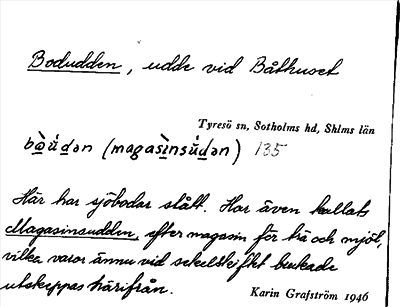 Bodudden, udde vid Båthuset
Tyresö sn, Sotholms hd, Shlms län
bò̱ú̇d̲ən (magasì̱nsú̇d̲ən) 135
Här har sjöbodar stått. Har även kallats
Magasinsudden, efter magasin för trä och mjöl,
vilka varor ännu vid sekelskiftet brukade
utskeppas härifrån.
Karin Grafström 1946